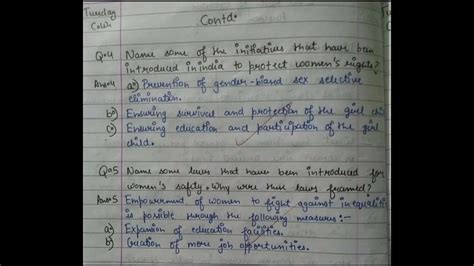 Tuesday
C.W.
Contd.
Q.4 Name some of the initiatives that have been
introduced in india to protect women's rights?
Ans.4 a) Prevention of gender-biased sex selective
elimination.
b) Ensuring survival and protection of the girl child
c) Ensuring education and participation of the girl
child.
Q.5 Name some laws that have been introduced for
women's safety. Why were these laws framed?
Ans.5 Empowerment of women to fight against inequalities
is possible through the following measures:-
a) Expansion of education facilities.
b) Creation of more job opportunities.